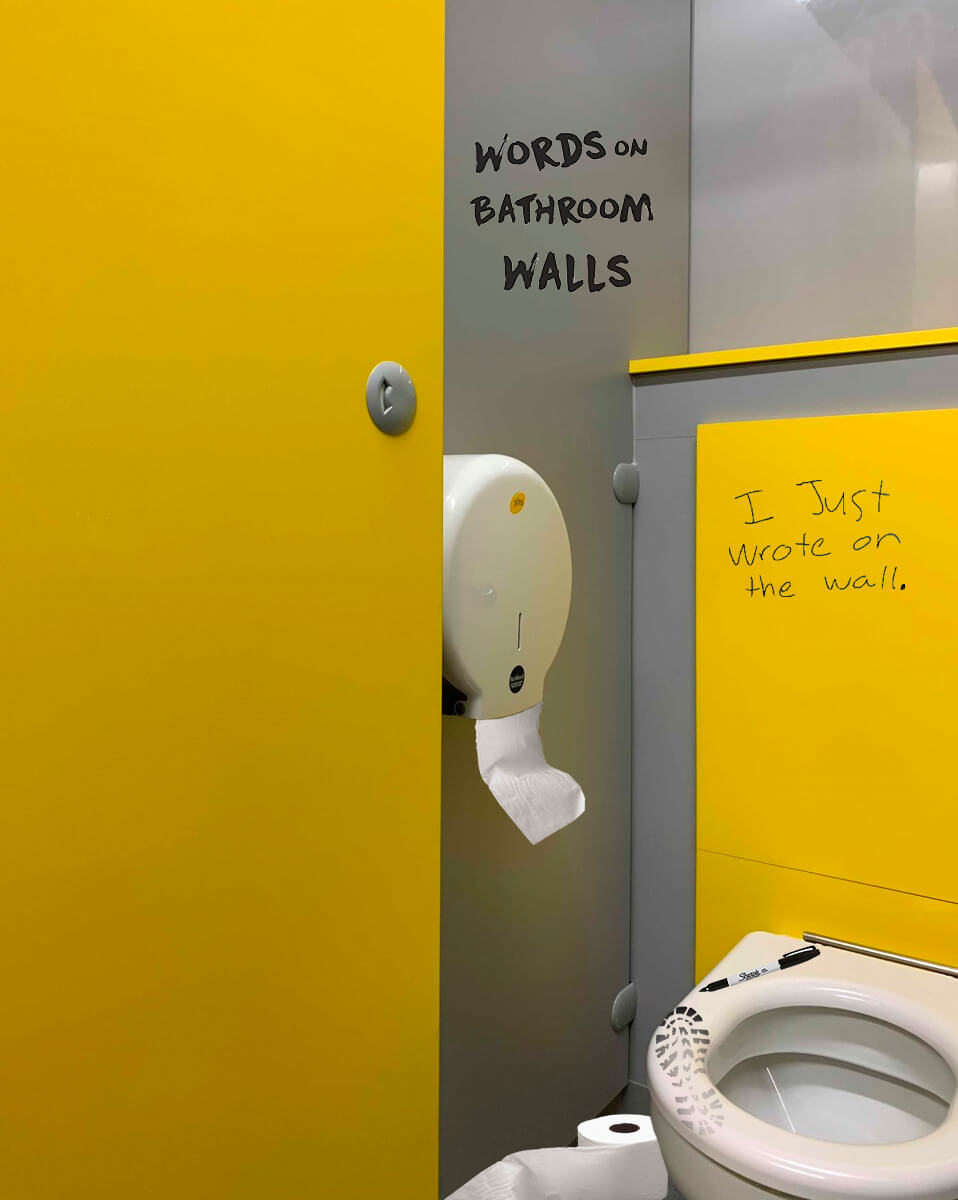 WORDS ON
BATHROOM
WALLS
I Just
wrote on
the wall.
Sharpie